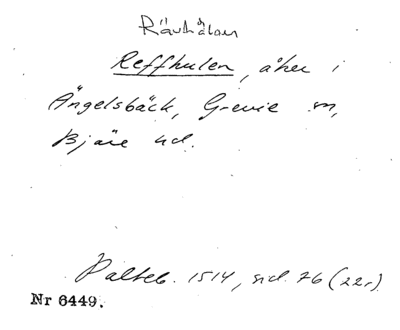 Rävhålan
Reffhulen, åker i
Ängelsbäck, Grevie sn,
Bjäre hd.
Palteb. 1514, sid. 76 (22r)
Nr 6449.